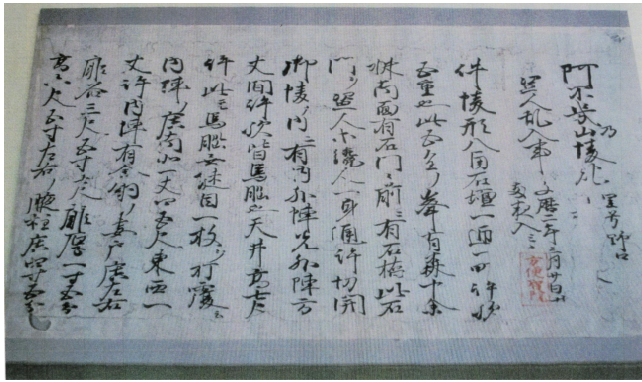 阿不幾乃山陵記 里号野口
盗人乱入事 文暦二年三月廿日廿一日
両夜入云々
方便智院
件陵形八角石壇一匝一町許歟
五重也此五ヶノ峯有森十余
株南面有石門々前ニ有石橋此石
門ヲ盗人等纔人一身通許切開
御陵ノ内ニ有内外陣先外陣方
丈間許歟皆馬脳也天井高七尺
許此モ馬脳無継目一枚ヲ打覆云々
内陣ノ広南北一丈四五尺東西一
丈許内陣有金銅ノ妻戸広左右
扉各三尺五寸七尺扉厚一寸五分
高六尺五寸左右ノ腋柱広四寸五分